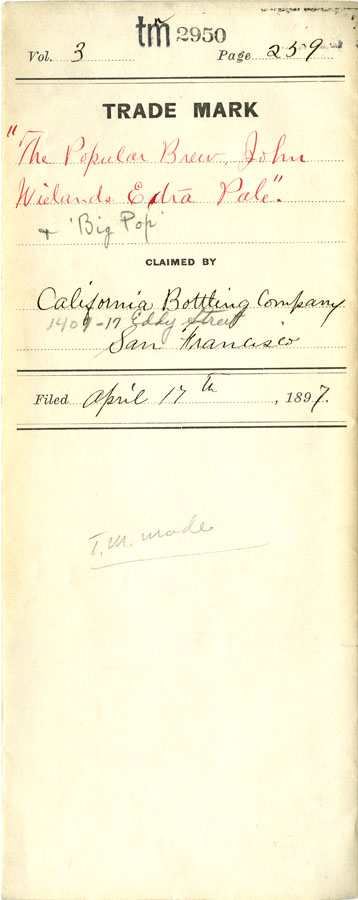 tm 2950
Vol. 3 Page 259
TRADE MARK
"The Popular Brew, John
Wielands Extra Pale".
+ 'Big Pop'
CLAIMED BY
California Bottling Company
1407-17 Eddy Street
San Francisco
Filed April 17th, 1897.
T. M. made